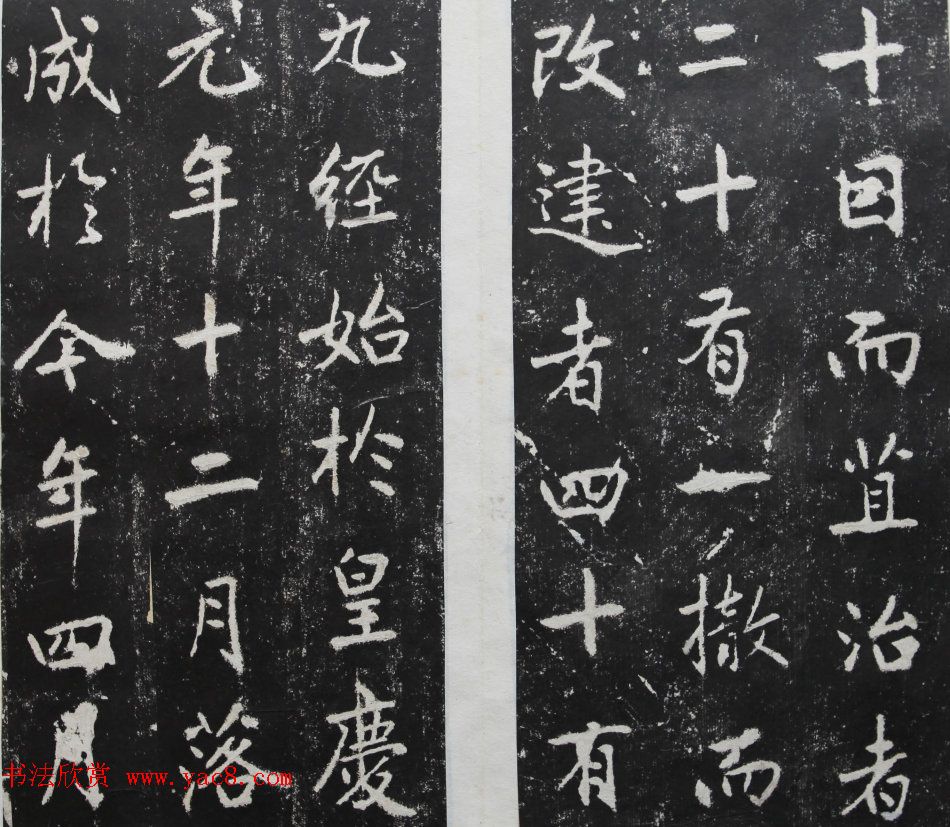 十因而葺治者
二十有一撤而
改建者四十有
九經始於皇慶
元年十二月落
成於今年四月
书法欣赏 www.yac8.com